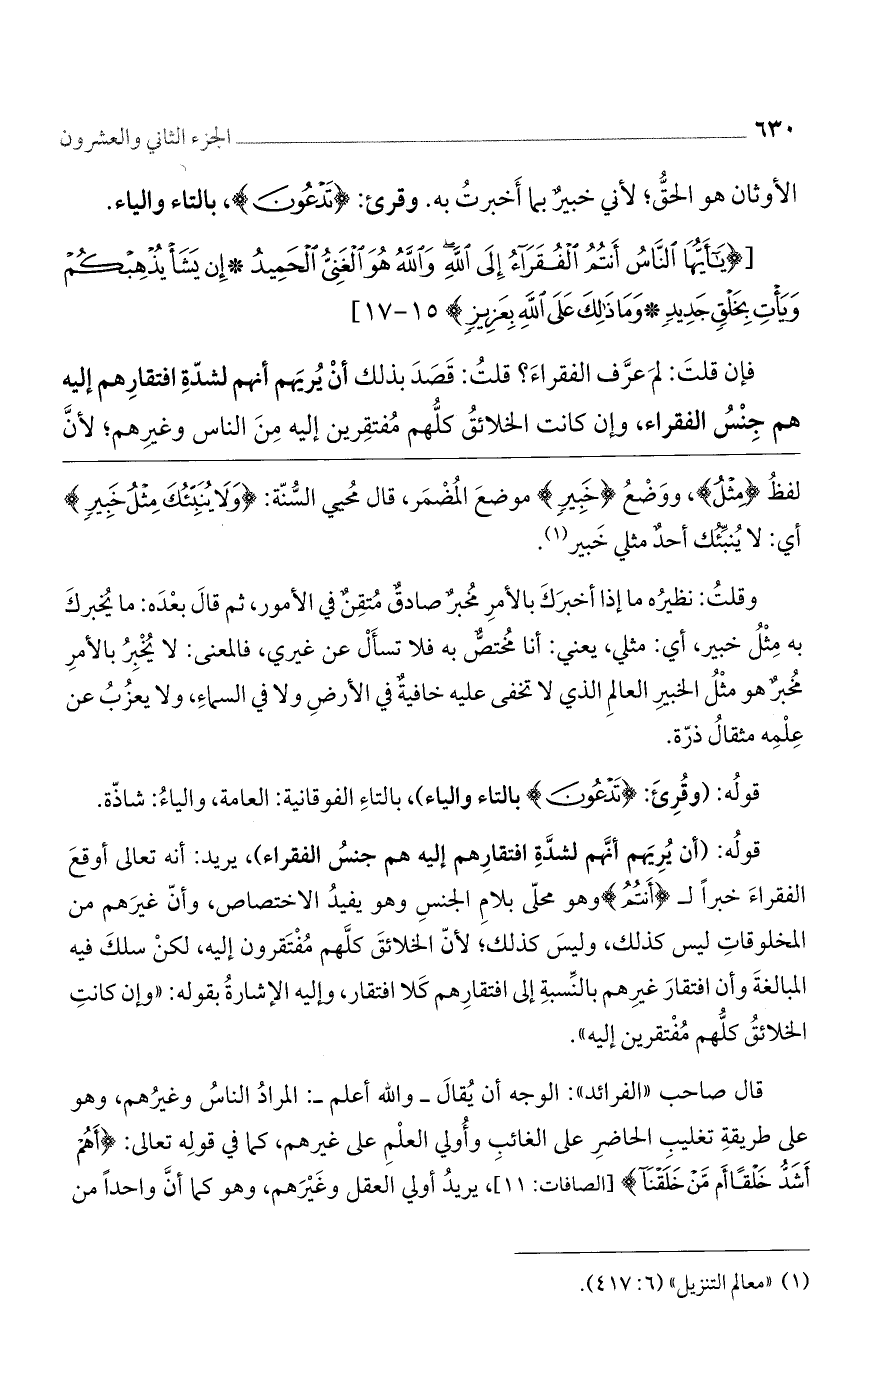 ٦٣٠ الجزء الثاني والعشرون
الأوثان هو الحقُّ؛ لأني خبيرٌ بما أَخبرتُ به. وقرئ: ﴿تَدْعُونَ﴾، بالتاء والياء.
[﴿يَٰٓأَيُّهَا ٱلنَّاسُ أَنتُمُ ٱلْفُقَرَآءُ إِلَى ٱللَّهِ ۖ وَٱللَّهُ هُوَ ٱلْغَنِىُّ ٱلْحَمِيدُ * إِن يَشَأْ يُذْهِبْكُمْ
وَيَأْتِ بِخَلْقٍ جَدِيدٍ * وَمَا ذَٰلِكَ عَلَى ٱللَّهِ بِعَزِيزٍ﴾ ١٥-١٧]
فإن قلتَ: لِمَ عرَّف الفقراءَ؟ قلتُ: قَصَدَ بذلك أنْ يُرِيَهم أنهم لشدّةِ افتقارِهم إليه
هم جِنْسُ الفقراء، وإن كانت الخلائقُ كلُّهم مُفتقِرين إليه مِنَ الناس وغيرِهم؛ لأنَّ
لفظُ ﴿مِثْلُ﴾، ووَضْعُ ﴿خَبِيرٍ﴾ موضعَ المُضْمَر، قال مُحيي السُّنّة: ﴿وَلَا يُنَبِّئُكَ مِثْلُ خَبِيرٍ﴾
أي: لا يُنبِّئُك أحدٌ مثلي خَبير(١).
وقلتُ: نظيرُه ما إذا أخبرَكَ بالأمرِ مُخبرٌ صادقٌ مُتقِنٌ في الأمور، ثم قالَ بعْدَه: ما يُخبركَ
به مِثْلُ خبير، أي: مثلي، يعني: أنا مُختصٌّ به فلا تسأَلْ عن غيري، فالمعنى: لا يُخْبِرُ بالأمرِ
مُخبرٌ هو مثْلُ الخبيرِ العالمِ الذي لا تخفى عليه خافيةٌ في الأرضِ ولا في السماءِ، ولا يعزُبُ عن
عِلْمِه مثقالُ ذرّة.
قولُه: (وقُرِئَ: ﴿تَدْعُونَ﴾ بالتاء والياء)، بالتاءِ الفوقانية: العامة، والياءُ: شاذّة.
قولُه: (أن يُرِيَهم أنَّهم لشدَّةِ افتقارِهم إليه هم جنسُ الفقراء)، يريد: أنه تعالى أوقعَ
الفقراءَ خبراً لـ ﴿أَنتُمُ﴾ وهو محلّى بلامِ الجنسِ وهو يفيدُ الاختصاص، وأنّ غيرَهم من
المخلوقاتِ ليس كذلك، وليسَ كذلك؛ لأنّ الخلائقَ كلَّهم مُفْتَقرون إليه، لكنْ سلكَ فيه
المبالغةَ وأن افتقارَ غيرِهم بالنِّسبةِ إلى افتقارِهم كَلا افتقار، وإليه الإشارةُ بقوله: «وإن كانتِ
الخلائقُ كلُّهم مُفْتقرين إليه».
قال صاحب «الفرائد»: الوجه أن يُقالَ ـ والله أعلم ـ: المرادُ الناسُ وغيرُهم، وهو
على طريقةِ تغليبِ الحاضرِ على الغائبِ وأُولي العلْمِ على غيرهم، كما في قولِه تعالى: ﴿أَهُمْ
أَشَدُّ خَلْقًا أَم مَّنْ خَلَقْنَآ﴾ [الصافات: ١١]، يريدُ أولي العقل وغَيْرَهم، وهو كما أنَّ واحداً من
(١) «معالم التنزيل» (٦: ٤١٧).